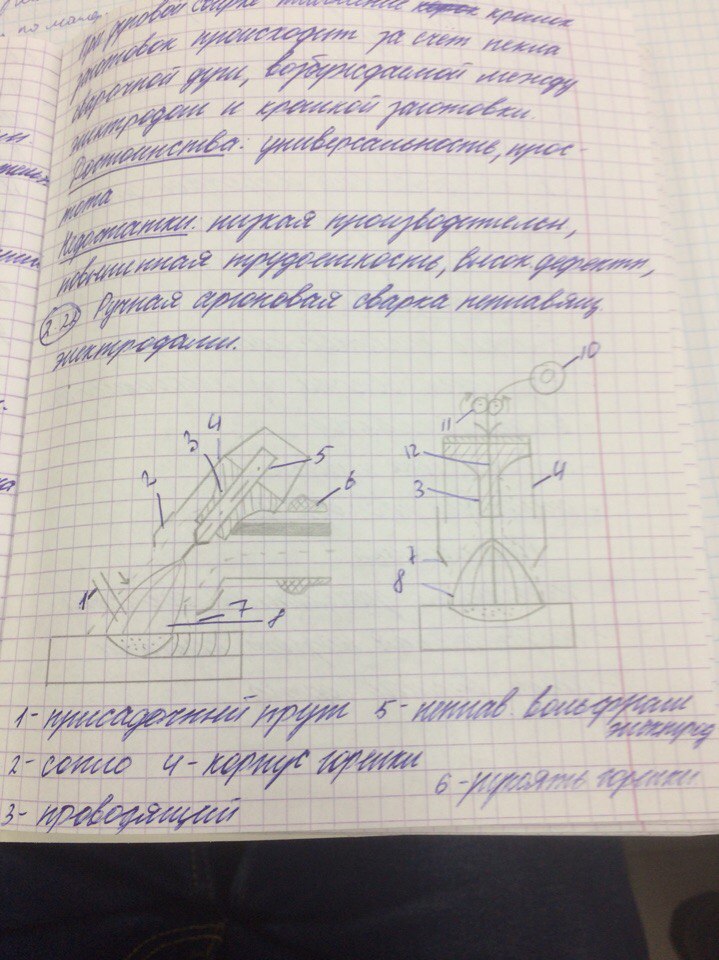 по
При дуговой сварке плавление кромок
заготовок происходит за счет тепла
сварочной дуги, возбуждаемой между
электродом и кромкой заготовки.
Достоинства: универсальность, прос-
тота
Недостатки: низкая производительн,
повышенная трудоемкость, высок дефектн,
2.2. Ручная аргоновая сварка неплавящ.
электродами.
10
11
4
3
5
12
2
6
3
4
7
1
8
7
8
1- присадочный прут 5- неплав вольфрам
электрод
2- сопло 4- корпус горелки
6- рукоять горелки
3- проводящий